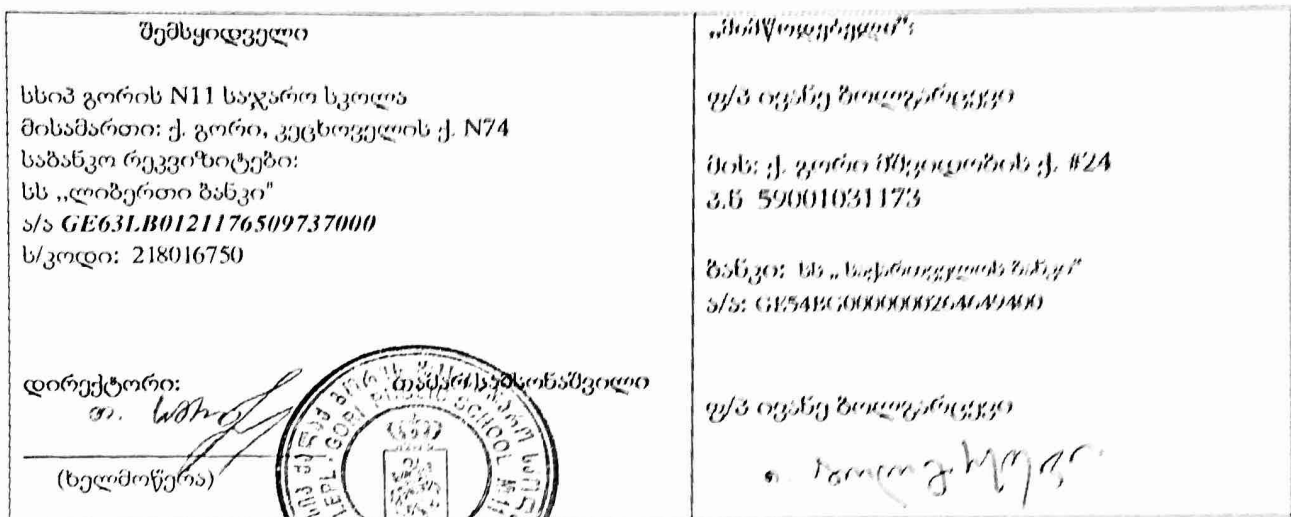 შემსყიდველი
სსიპ გორის N11 საჯარო სკოლა
მისამართი: ქ. გორი, კეცხოველის ქ. N74
საბანკო რეკვიზიტები:
სს ,,ლიბერთი ბანკი"
ა/ა GE63LB0121176509737000
ს/კოდი: 218016750
დირექტორი: თამარ სამსონაშვილი
(ხელმოწერა)
GORI PUBLIC SCHOOL №11
„მიმწოდებელი":
ფ/პ ივანე ბოლგარცევი
მის: ქ. გორი მშვიდობის ქ. #24
პ.ნ 59001031173
ბანკი: სს „ საქართველოს ბანკი"
ა/ა: GE54BG0000000264649400
ფ/პ ივანე ბოლგარცევი